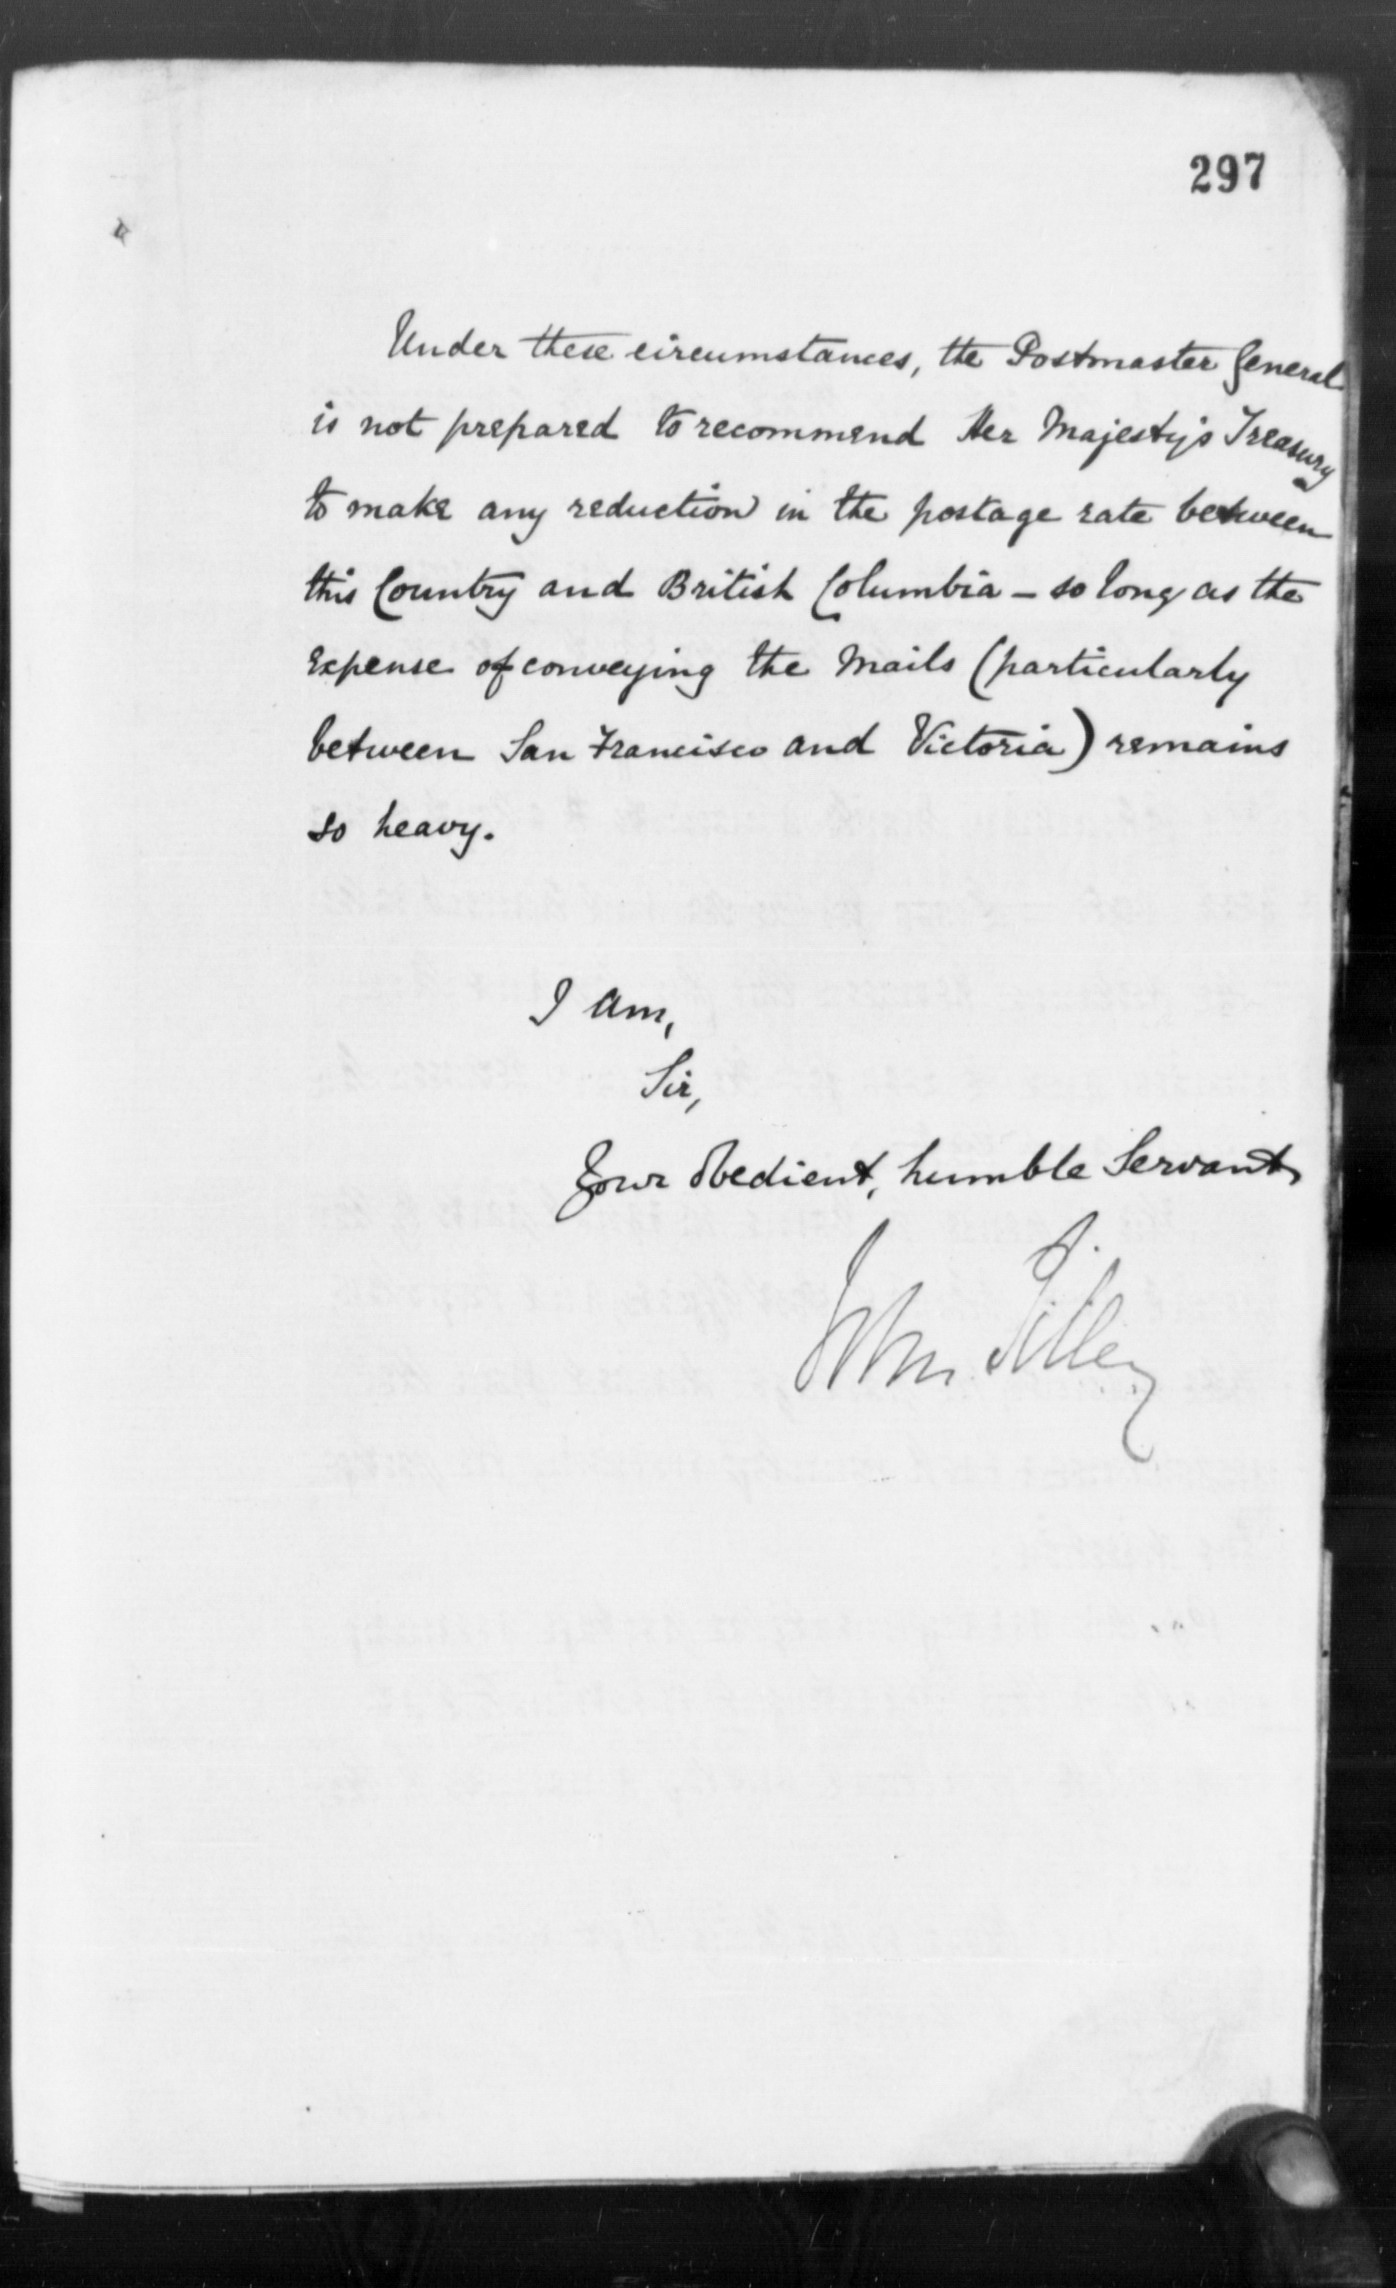 297
Under these circumstances, the Postmaster General
is not prepared to recommend Her Majesty's Treasury
to make any reduction in the postage rate between
this Country and British Columbia – so long as the
expense of conveying the Mails (particularly
between San Francisco and Victoria) remains
so heavy.
I am,
Sir,
Your obedient, humble Servant,
John Tilley